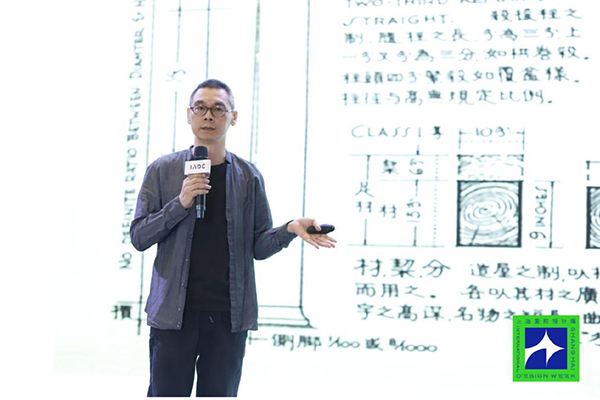 NO DEFINITE RATIO BETWEEN DIAMTER & H
TWO-THIRD
STRAIGHT. 殺梭柱之
制, 隨柱之長, 分為三分, 上
一分又分為三分, 如栱卷殺,
柱頭四分緊殺如覆盆樣.
柱徑与高無規定比例.
CLASS I 等
10分
栔
足材
材
9 INCHES
材, 栔, 分 造屋之制, 以材
而用之。 各以其材之廣
字之高深, 名物之短長, 曲
櫍
側腳 1/100 或 8/1000
IADC
INTERNATIONAL
DESIGN WEEK
SHANGHAI